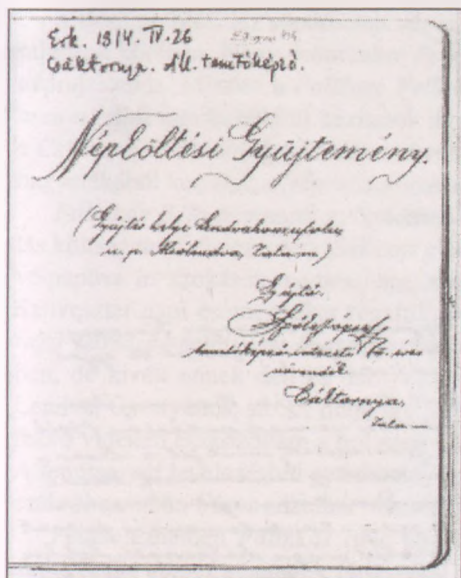 Érk. 1914. IV. 26
Csáktornya. Áll. tanítóképző.
Népköltési Gyüjtemény.
(Gyüjtés helye
u. p. Alsólendva, Zala m.)
Gyüjtő:
József
tanítóképző-intézeti IV. éves
növendék.
Csáktornya.
Zala m.